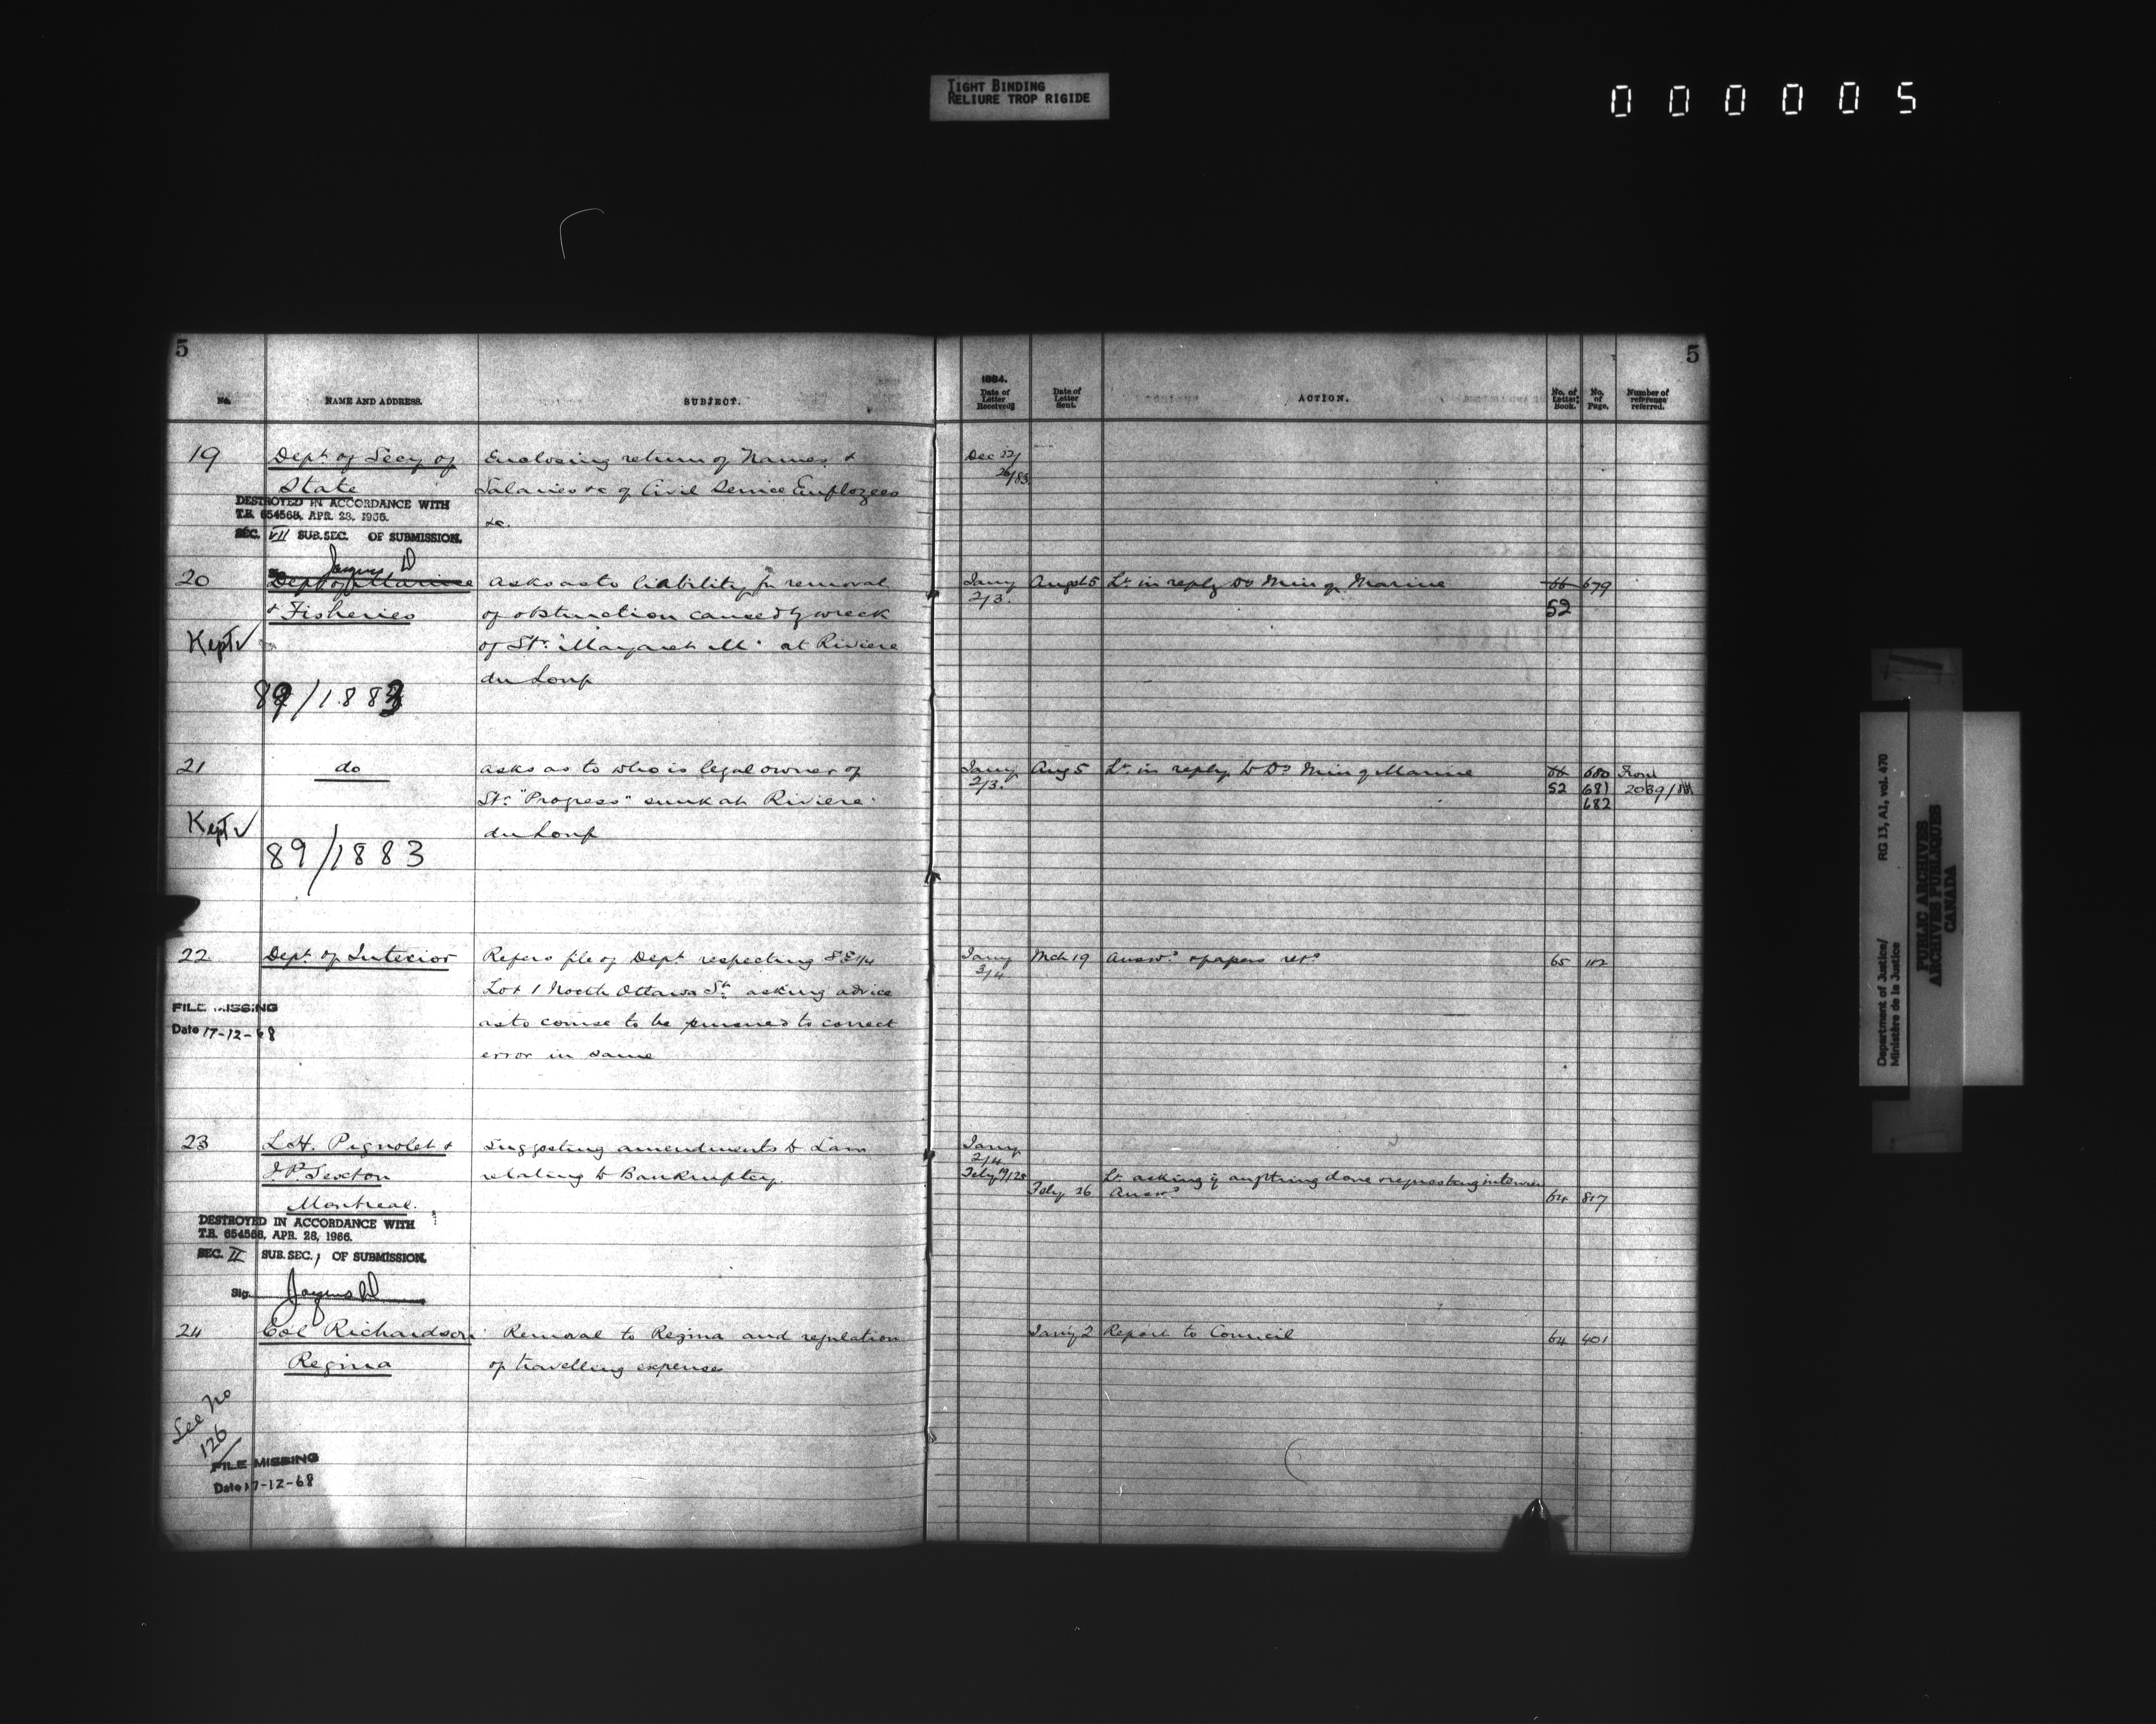 TIGHT BINDING
RELIURE TROP RIGIDE
000005
5
No. NAME AND ADDRESS. SUBJECT.
19 Dept. of Secy of Enclosing return of Names &
State Salaries &c of Civil Service Employees
&c.
DESTROYED IN ACCORDANCE WITH
T.B. 654568, APR. 28, 1966.
SEC. VII SUB.SEC. OF SUBMISSION.
20 Dept of Marine asks as to liability for removal
& Fisheries of obstruction caused by wreck
Kept of Str. "Margaret M" at Riviere
du Loup
89/1883
21 do asks as to who is legal owner of
Str. "Progress" sunk at Riviere
Kept du Loup
89/1883
22 Dept. of Interior Refers file of Dept. respecting SE 1/4
Lot 1 North Ottawa St. asking advice
as to course to be pursued to correct
error in same
FILE MISSING
Date 17-12-68
23 L.H. Pignolet & Suggesting amendments to Law
J.P. Sexton relating to Bankruptcy.
Montreal.
DESTROYED IN ACCORDANCE WITH
T.B. 654568, APR. 28, 1966.
SEC. II SUB.SEC. 1 OF SUBMISSION.
Sig.
24 Col Richardson Removal to Regina and regulation
Regina of travelling expenses
See No
126
FILE MISSING
Date 17-12-68
5
1884.
Date of Letter Received Date of Letter Sent. ACTION. No. of Letter Book. No. of Page. Number of reference referred.
Dec 22/
26/83
Jany Augst 5 Lr. in reply Do Min of Marine 66 679
2/3. 52
Jany Aug 5 Lr. in reply to Do Min of Marine 66 680 From
2/3. 52 681 2039/
682
Jany Mch 19 Answd. & papers retd. 65 102
3/4
Jany
2/4
Feby 19/25 Lr asking if anything done & requesting interview
Feby 26 Answd 64 817
Jany 2 Report to Council 64 401
Department of Justice/ RG 13, A1, vol. 470
Ministère de la Justice
PUBLIC ARCHIVES
ARCHIVES PUBLIQUES
CANADA